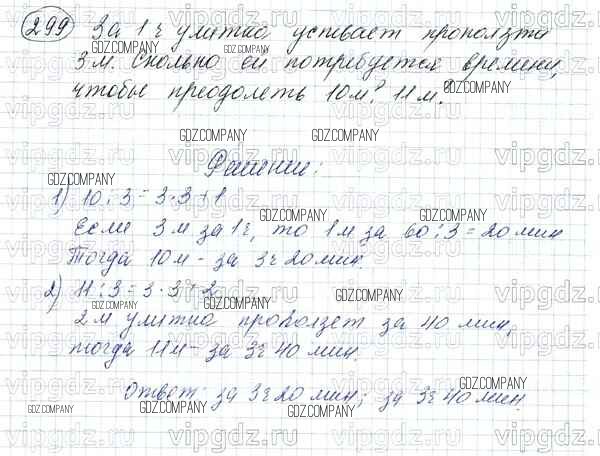 299 За 1 ч улитка успевает проползти
3 м. Сколько ей потребуется времени,
чтобы преодолеть 10 м? 11 м?
Решение:
1) 10 : 3 = 3 · 3 + 1
Если 3 м за 1 ч, то 1 м за 60 : 3 = 20 мин
Тогда 10 м - за 3 ч 20 мин.
2) 11 : 3 = 3 · 3 + 2
2 м улитка проползет за 40 мин,
тогда 11 м - за 3 ч 40 мин.
Ответ: за 3 ч 20 мин; за 3 ч 40 мин.
GDZ.COMPANY
vipgdz.ru